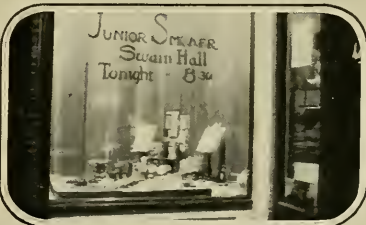 JUNIOR SMOKER
Swain Hall
Tonight - 8 30